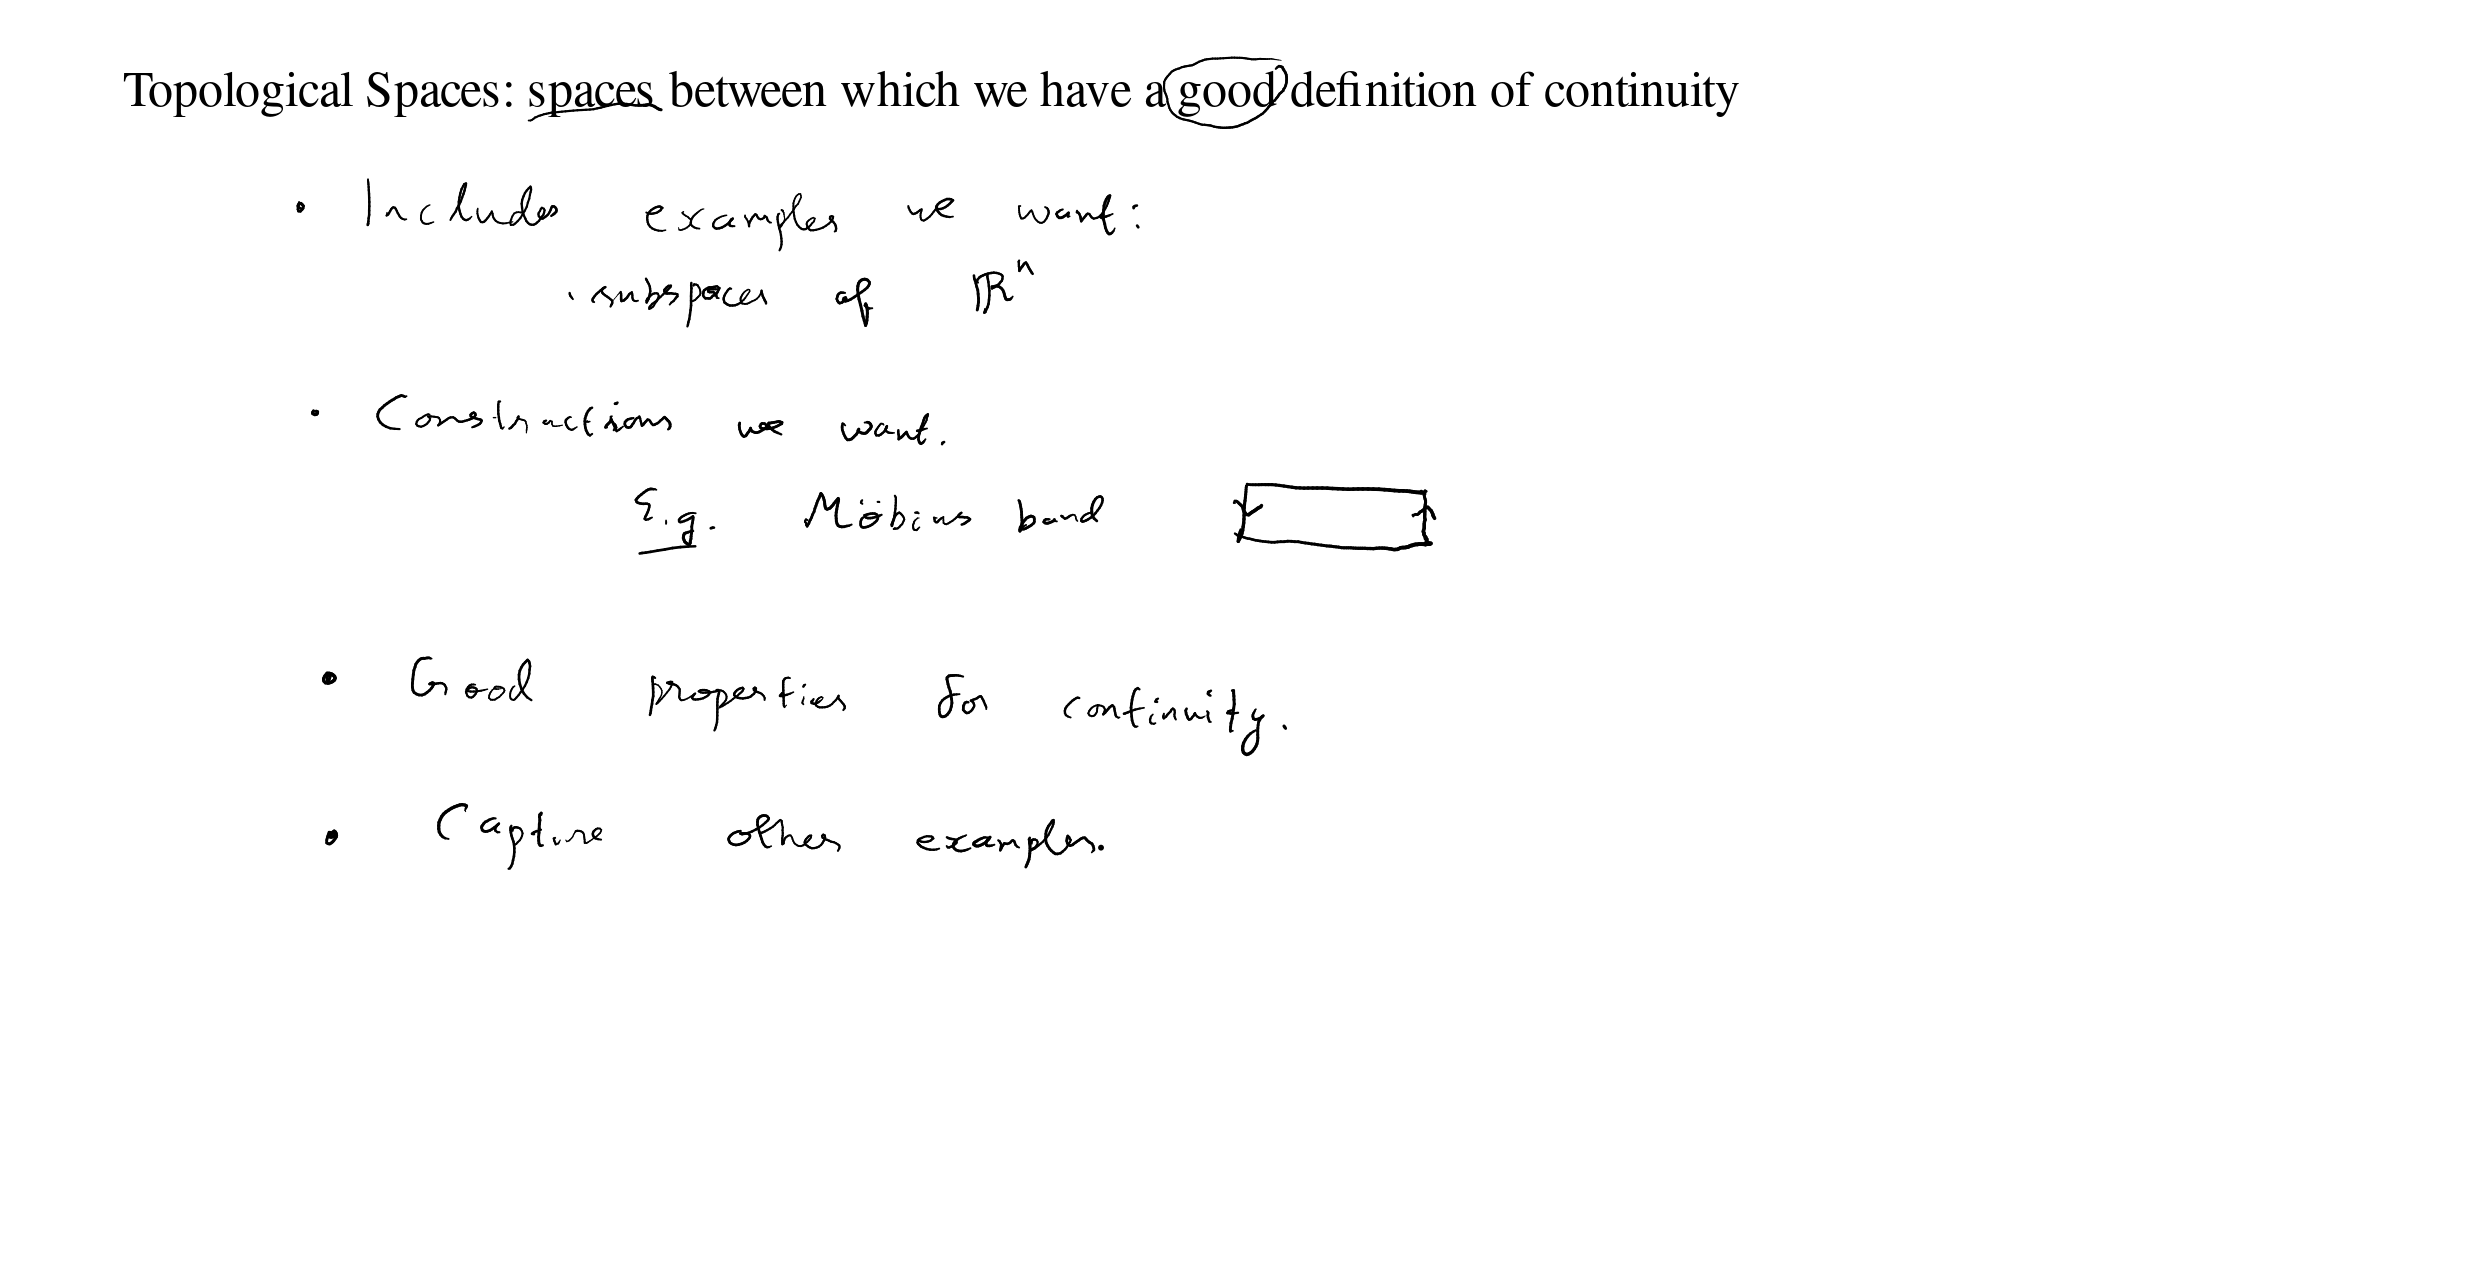 Topological Spaces: spaces between which we have a good definition of continuity
• Includes examples we want:
· subspaces of ℝⁿ
• Constructions we want.
E.g. Möbius band
• Good properties for continuity.
• Capture other examples.